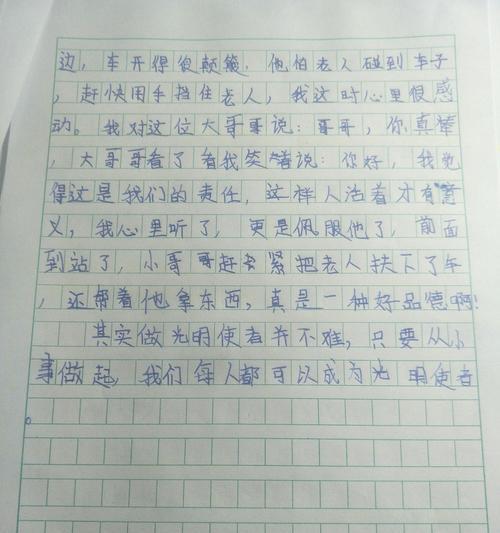 边，车开得很颠簸，他怕老人碰到车子
，赶快用手挡住老人，我这时心里很感
动。我对这位大哥哥说：哥哥，你真棒
，大哥哥看了看我笑着说：你好，我觉
得这是我们的责任，这样人活着才有意
义，我心里听了，更是佩服他了，前面
到站了，小哥哥赶紧把老人扶下了车
，还帮着他拿东西，真是一种好品德啊！
其实做光明使者并不难，只要从小
事做起，我们每人都可以成为光明使者
。